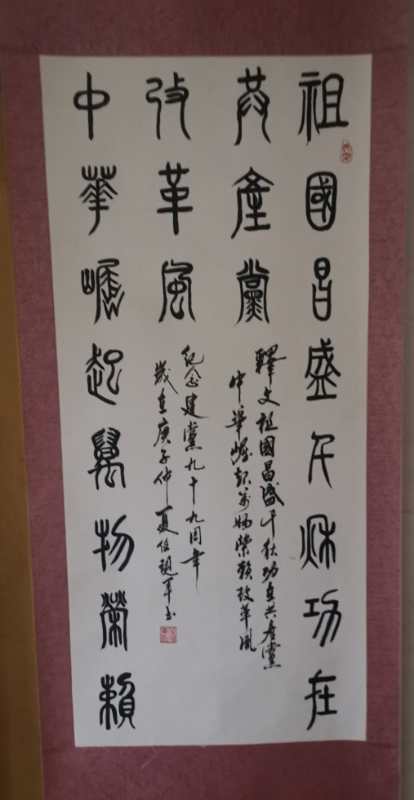 祖國昌盛千秋功在
共產黨
中華崛起萬物榮賴
改革風
釋文祖國昌盛千秋功在共产黨
中華崛起萬物榮賴改革風
紀念建黨九十九周年
歲在庚子仲夏